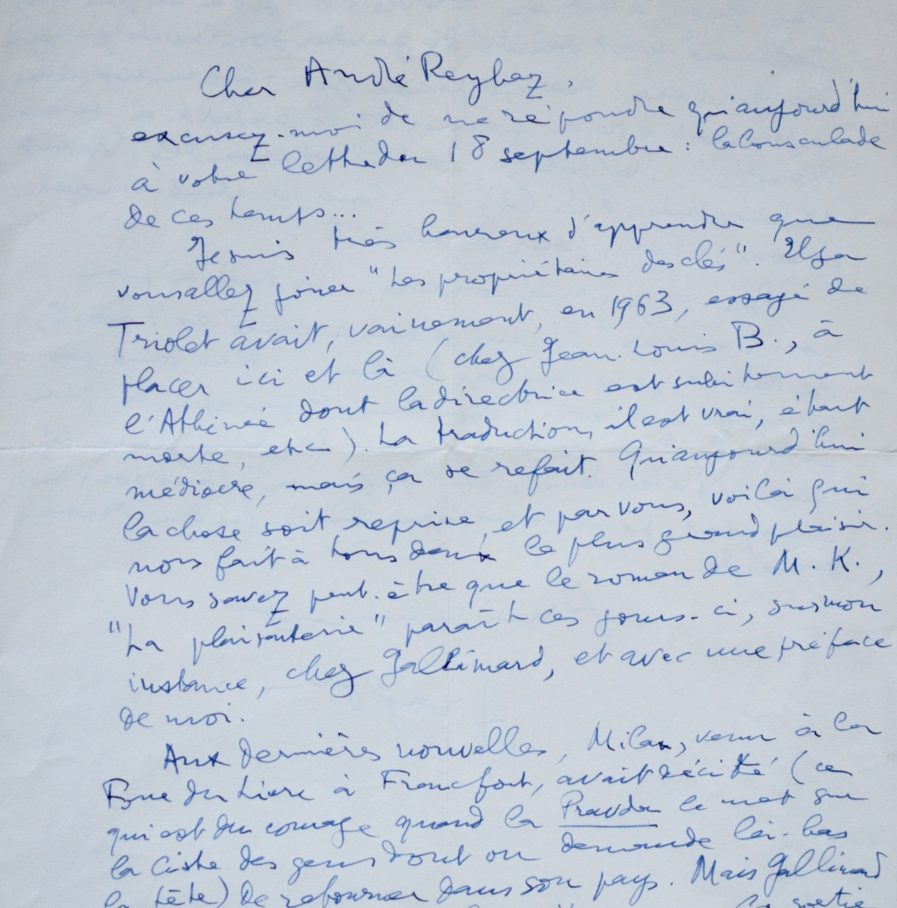 Cher André Reybaz,
excusez-moi de ne répondre qu'aujourd'hui
à votre lettre du 18 septembre : la bousculade
de ces temps...
Je suis très heureux d'apprendre que
vous allez jouer "Les propriétaires des clés". Elsa
Triolet avait, vainement, en 1963, essayé de
placer ici et là (chez Jean-Louis B., à
l'Athénée dont la directrice est subitement
morte, etc). La traduction, il est vrai, était
médiocre, mais ça se refait. Qu'aujourd'hui
la chose soit reprise, et par vous, voilà qui
nous fait à tous deux le plus grand plaisir.
Vous savez peut-être que le roman de M. K.,
"La plaisanterie" paraît ces jours-ci, sur mon
instance, chez Gallimard, et avec une préface
de moi.
Aux dernières nouvelles, Milan, venu à la
Foire du Livre à Francfort, avait décidé (ce
qui est du courage quand la Pravda le met sur
la liste des gens dont on demande là-bas
la tête) de retourner dans son pays. Mais Gallimard
la sortie